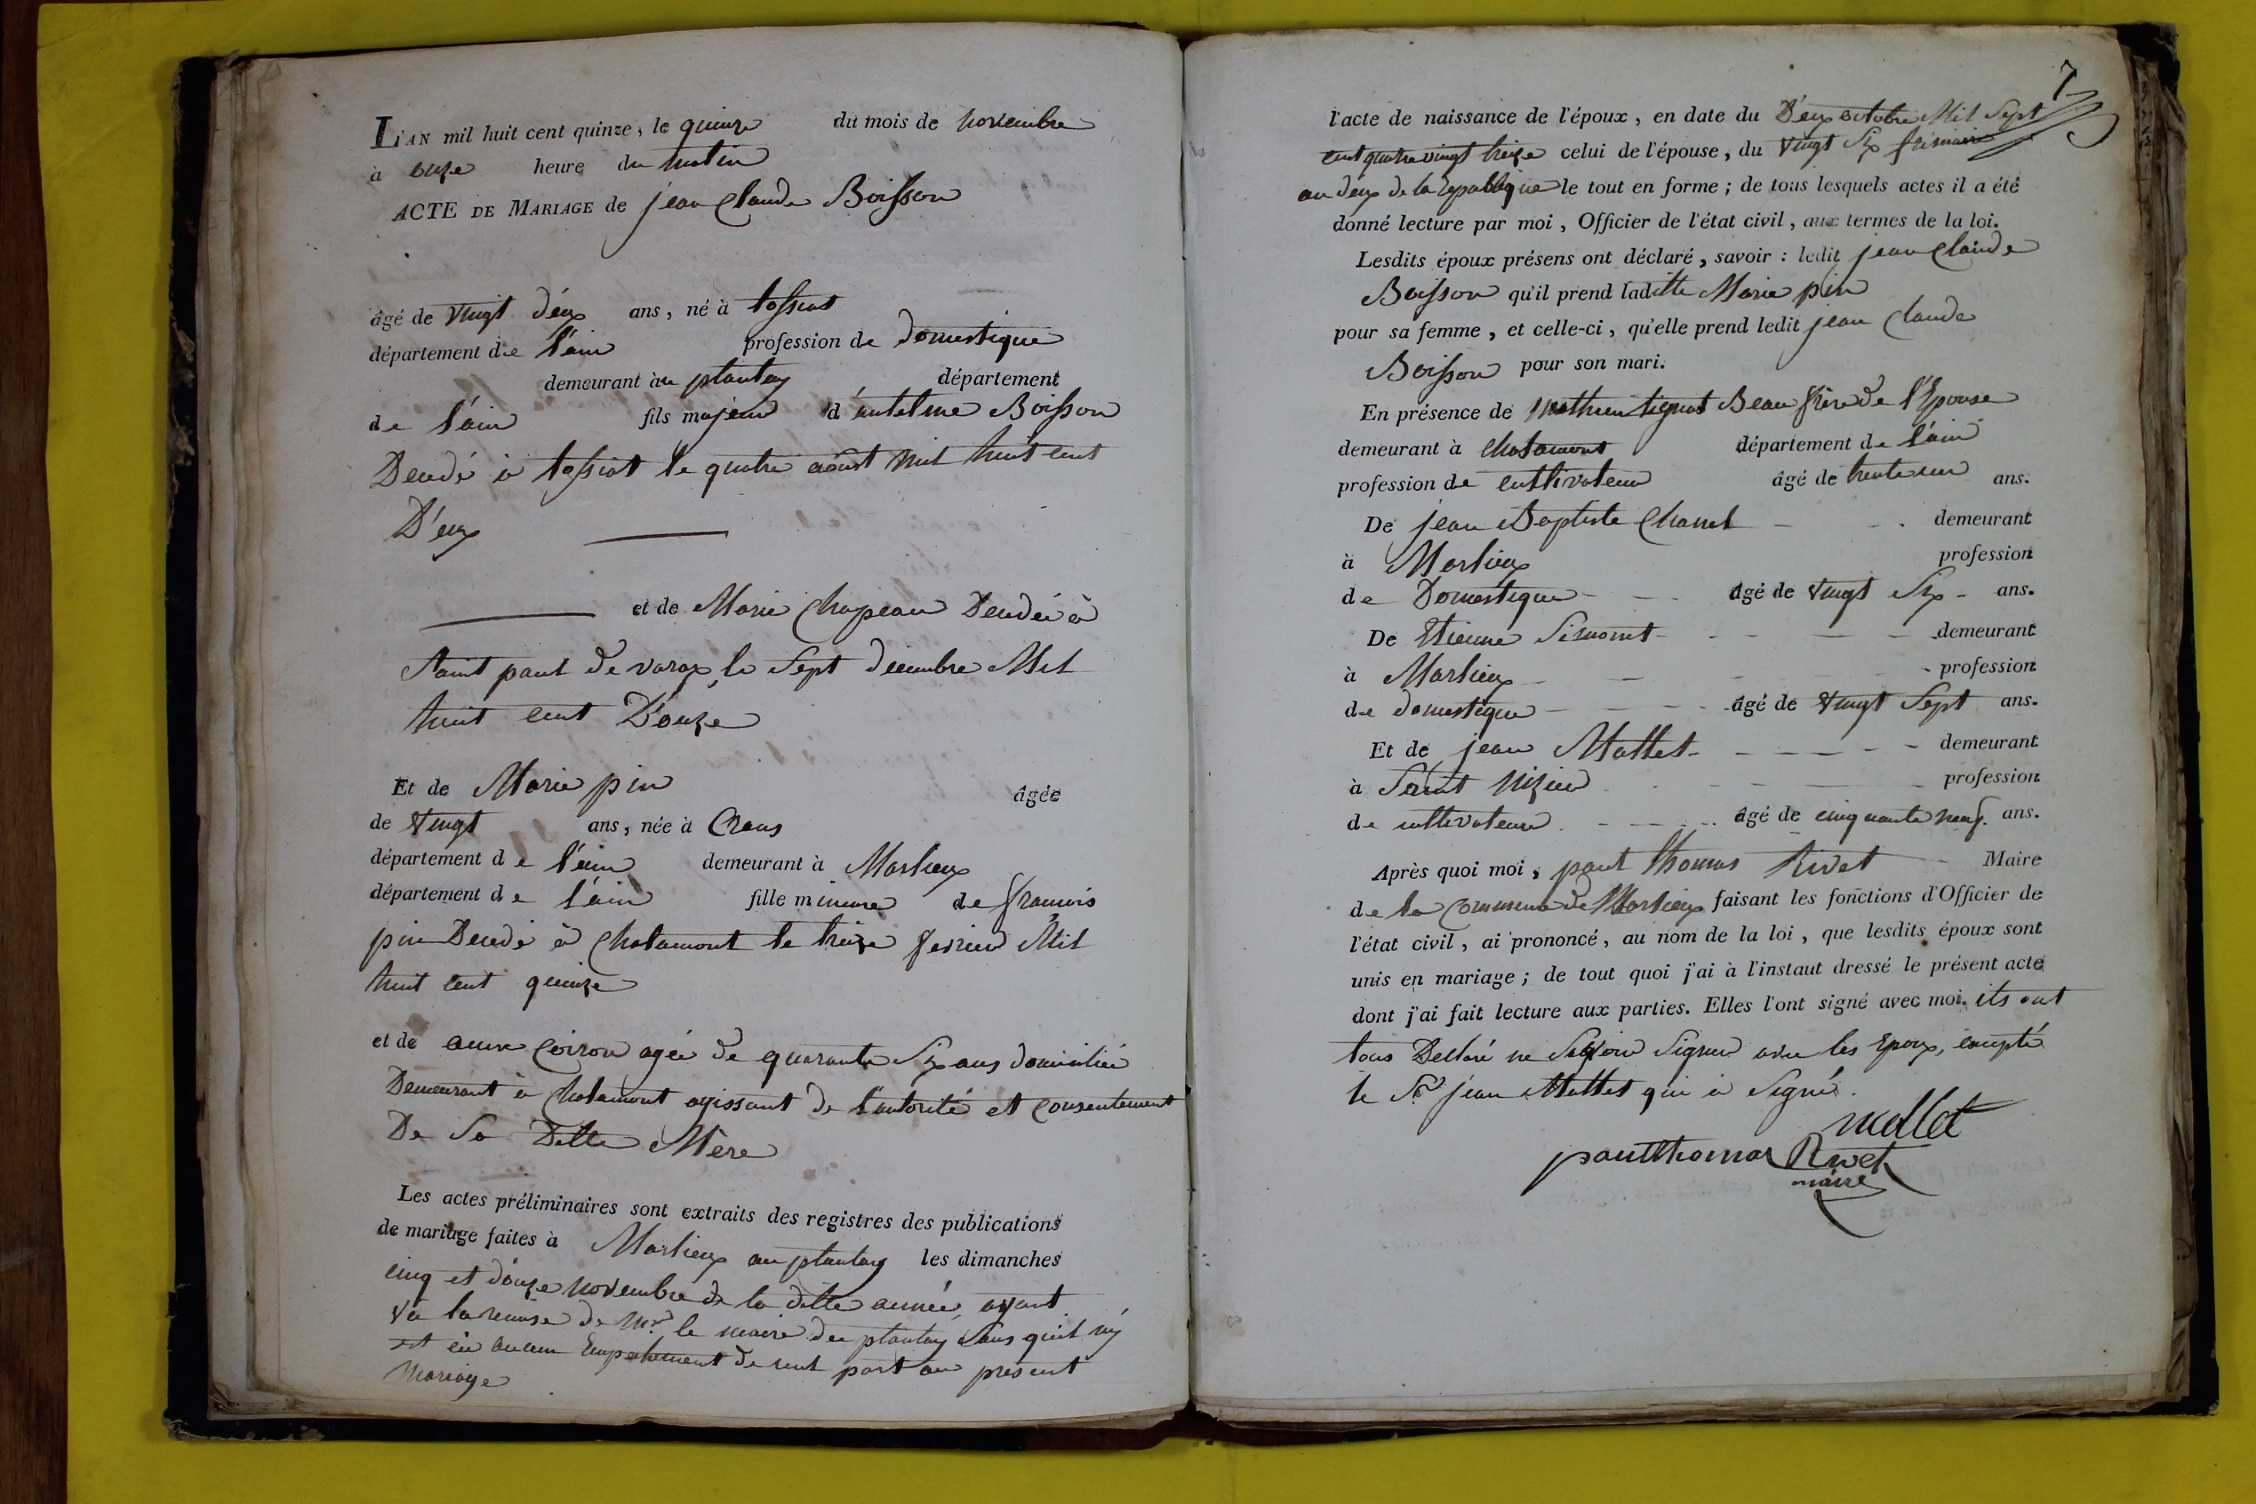 L'AN mil huit cent quinze, le quinze du mois de novembre
à onze heure du matin
ACTE DE MARIAGE de jean Claude Boisson
âgé de vingt déux ans, né à tossiat
département de l'ain profession de domestique
demeurant àu plantay département
de l'ain fils majeur d'antelme Boisson
Decedé à tossiat le quatre aôust mil huit cent
D'eux
et de Marie Chapeau Decedéé à
saint paul de varax, le sept decembre Mil
huit cent D'ouze
Et de Marie pin âgée
de vingt ans, née à Crans
département de l'ain demeurant à Marlieux
département de l'ain fille mineure de francois
pin Decedé à Chalamont le treize fevrier Mil
huit cent quinze
et de anne Coiron agée de quarante six ans domiciliée
Demeurant à Chalamont agissant de l'autorité et Consentement
De Sa Ditte Mère
Les actes préliminaires sont extraits des registres des publications
de mariage faites à Marlieux au plantay les dimanches
cinq et d'ouze novembre de la ditte année, ayant
vû la remise de Mr le maire du plantay sans qu'il n'y
ait eû aucun Empechement de nul part au present
mariage
7
l'acte de naissance de l'époux, en date du D'eux octobre Mil Sept
cent quatre vingt treize celui de l'épouse, du vingt Six frimaire
an déux de la republique le tout en forme; de tous lesquels actes il a été
donné lecture par moi, Officier de l'état civil, aux termes de la loi.
Lesdits époux présens ont déclaré, savoir: ledit jean Claude
Boisson qu'il prend laditte Marie pin
pour sa femme, et celle-ci, qu'elle prend ledit jean Claude
Boisson pour son mari.
En présence de Mathieu tignat Beau frère de l'Epouse
demeurant à Chalamont département de l'ain
profession de cultivateur âgé de trente un ans.
De jean Baptiste Chanel demeurant
à Marlieux profession
de Domestique âgé de vingt Six ans.
De Etienne Simonet demeurant
à Marlieux profession
de domestique âgé de vingt Sept ans.
Et de jean Mallet demeurant
à Saint Nizier profession
de cultivateur âgé de cinquante neuf ans.
Après quoi moi, paul thomas Rivet Maire
de la Commune de Marlieux faisant les fonctions d'Officier de
l'état civil, ai prononcé, au nom de la loi, que lesdits époux sont
unis en mariage; de tout quoi j'ai à l'instant dressé le présent acte
dont j'ai fait lecture aux parties. Elles l'ont signé avec moi. ils ont
tous Declaré ne Savoir Signer avec les Epoux, excepté
le Sr jean Mallet qui à Signé.
mallet
paul thomas Rivet
maire